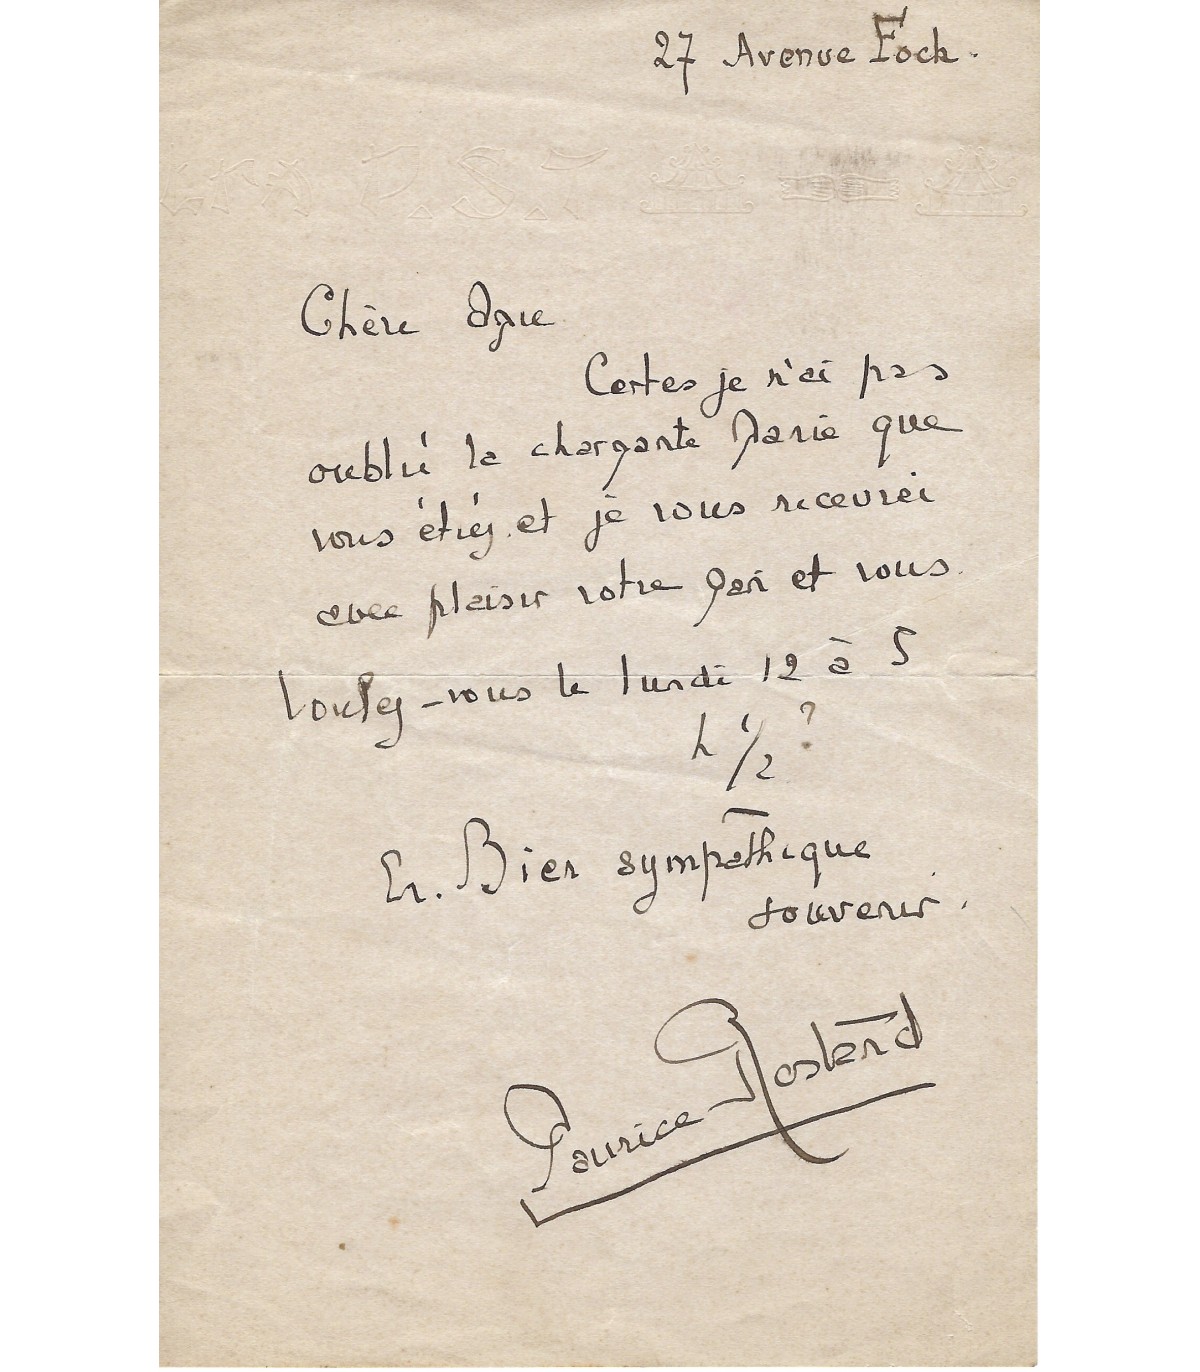 27 Avenue Foch.
Chère Amie
Certes je n'ai pas
oublié la charmante Marie que
vous étiez et je vous recevrai
avec plaisir votre mari et vous.
Voulez-vous le lundi 12 à 5
h 1/2 ?
En Bien sympathique
souvenir.
Maurice Rostand